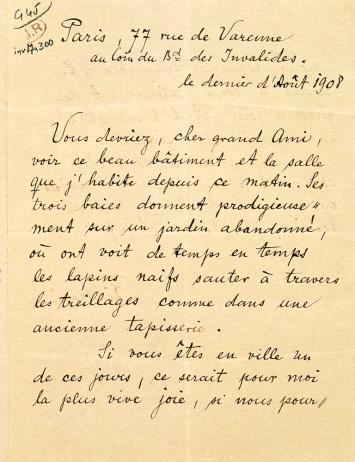 G45
I.R
inv M 300
Paris, 77 rue de Varenne
au Coin du Bd des Invalides.
le dernier d'Août 1908
Vous devriez, cher grand Ami,
voir ce beau bâtiment et la salle
que j'habite depuis ce matin. Ses
trois baies donnent prodigieuse〃
ment sur un jardin abandonné,
où ont voit de temps en temps
les lapins naïfs sauter à travers
les treillages comme dans une
ancienne tapisserie.
Si vous êtes en ville un
de ces jours, ce serait pour moi
la plus vive joie, si nous pour〃